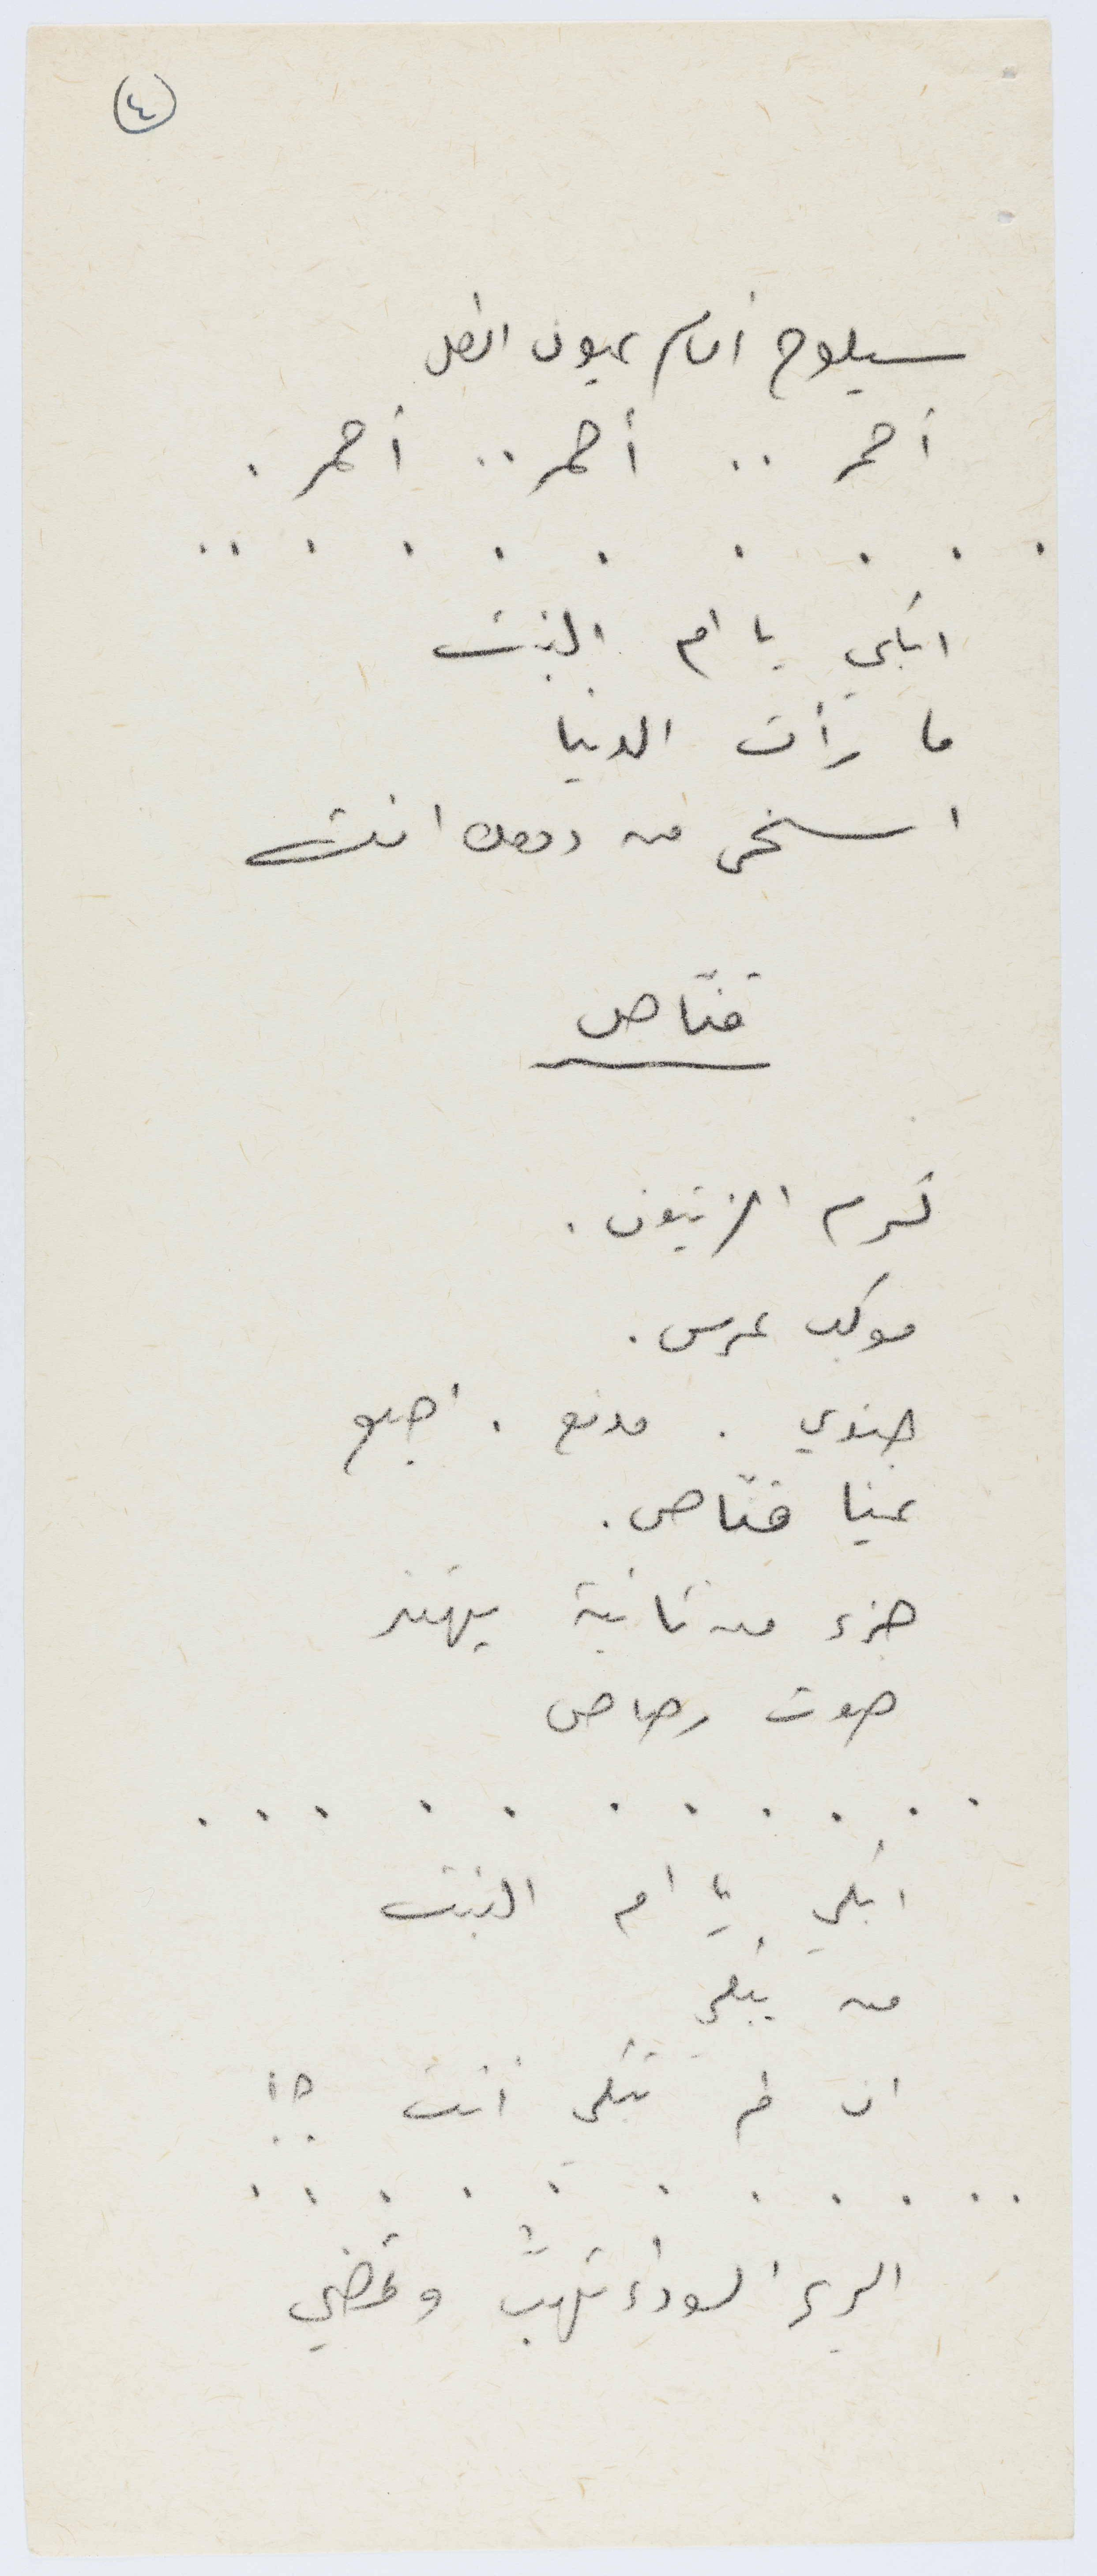 ٤
سيلوح أمام عيون الكل
أحمر .. أحمر .. أحمر .
. . . . . . . . . .
ابكي يا ام البنت
ما رأت الدنيا
اسخى من دمعك انت
قنّاص
كرم الزيتون .
موكب عرس .
جندي . مدفع . اصبع
عينا قنّاص .
جزء من ثانية يهتز
صوت رصاص
. . . . . . . . . . .
ابكي يا ام البنت
من يبكي
ان لم تبكي أنت ؟!
. . . . . . . . . . .
الريح السوداء تهبّ وتمضي